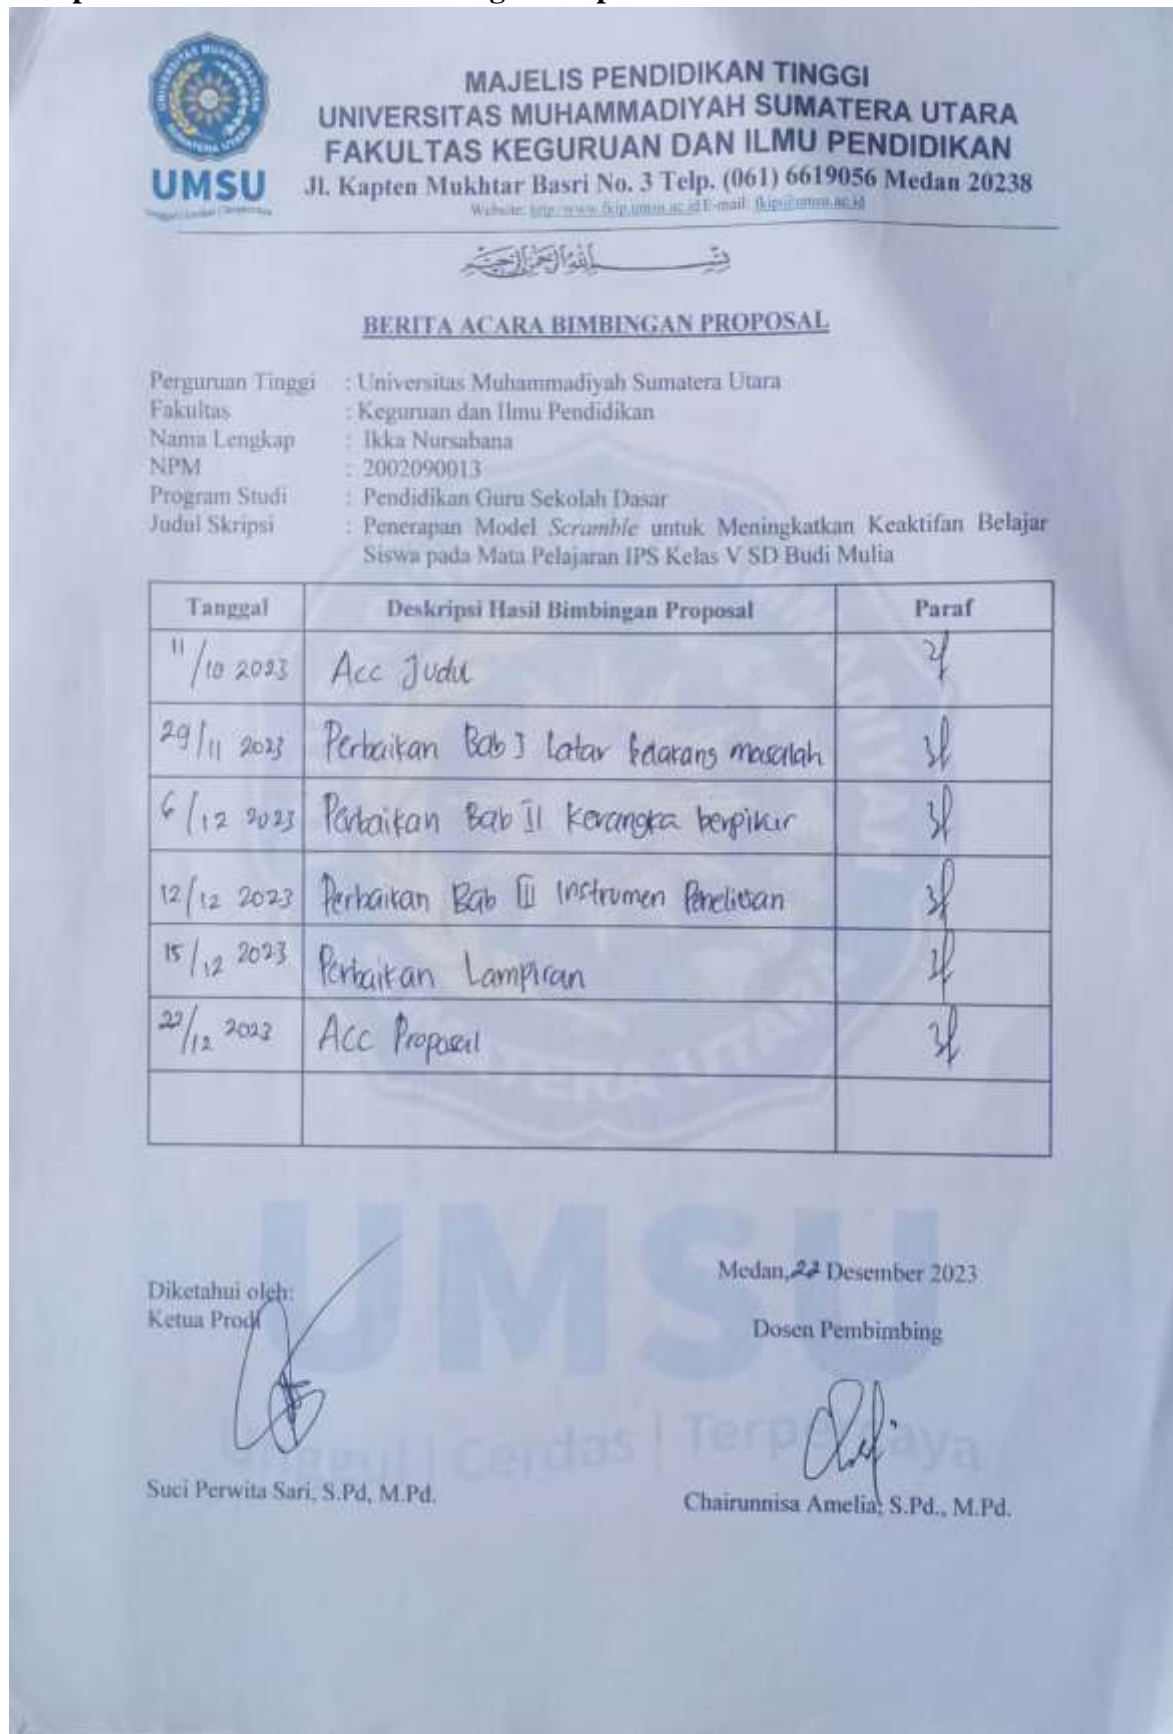 MAJELIS PENDIDIKAN TINGGI
UNIVERSITAS MUHAMMADIYAH SUMATERA UTARA
FAKULTAS KEGURUAN DAN ILMU PENDIDIKAN
UMSU
Jl. Kapten Mukhtar Basri No. 3 Telp. (061) 6619056 Medan 20238
Website: http://www.fkip.umsu.ac.id E-mail: fkip@umsu.ac.id
BERITA ACARA BIMBINGAN PROPOSAL
Perguruan Tinggi : Universitas Muhammadiyah Sumatera Utara
Fakultas : Keguruan dan Ilmu Pendidikan
Nama Lengkap : Ikka Nursabana
NPM : 2002090013
Program Studi : Pendidikan Guru Sekolah Dasar
Judul Skripsi : Penerapan Model Scramble untuk Meningkatkan Keaktifan Belajar
Siswa pada Mata Pelajaran IPS Kelas V SD Budi Mulia
Tanggal Deskripsi Hasil Bimbingan Proposal Paraf
11/10 2023 Acc Judul
29/11 2023 Perbaikan Bab I Latar belakang masalah
6/12 2023 Perbaikan Bab II Kerangka berpikir
12/12 2023 Perbaikan Bab III Instrumen Penelitian
15/12 2023 Perbaikan Lampiran
22/12 2023 Acc Proposal
UMSU
Unggul | Cerdas | Terpercaya
Medan, 22 Desember 2023
Diketahui oleh:
Ketua Prodi
Dosen Pembimbing
Suci Perwita Sari, S.Pd, M.Pd.
Chairunnisa Amelia, S.Pd., M.Pd.